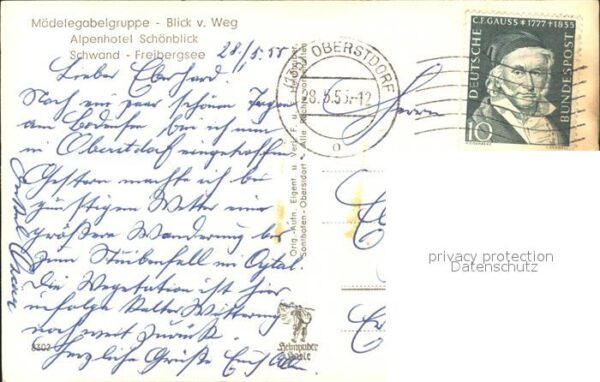 Mädelegabelgruppe - Blick v. Weg
Alpenhotel Schönblick
Schwand - Freibergsee
28/5.55
Lieber Eberhard!
Nach ein paar schönen Tagen
am Bodensee, bin ich nun
in Oberstdorf eingetroffen
Gestern machte ich bei
günstigem Wetter eine
größere Wanderung bis
zum Stuibenfall im Oytal.
Die Vegetation ist hier
infolge kalter Witterung
noch weit zurück.
Herzliche Grüße Euch Allen
Onkel
6302
Orig.-Aufn. Eigent. u. Verlag F. u.
Sonthofen-Oberstdorf - Alle Rechte
OBERSTDORF
28.5.55.-12
o
DEUTSCHE
C.F. GAUSS * 1777 † 1855
BUNDESPOST
10
Herrn
privacy protection
Datenschutz